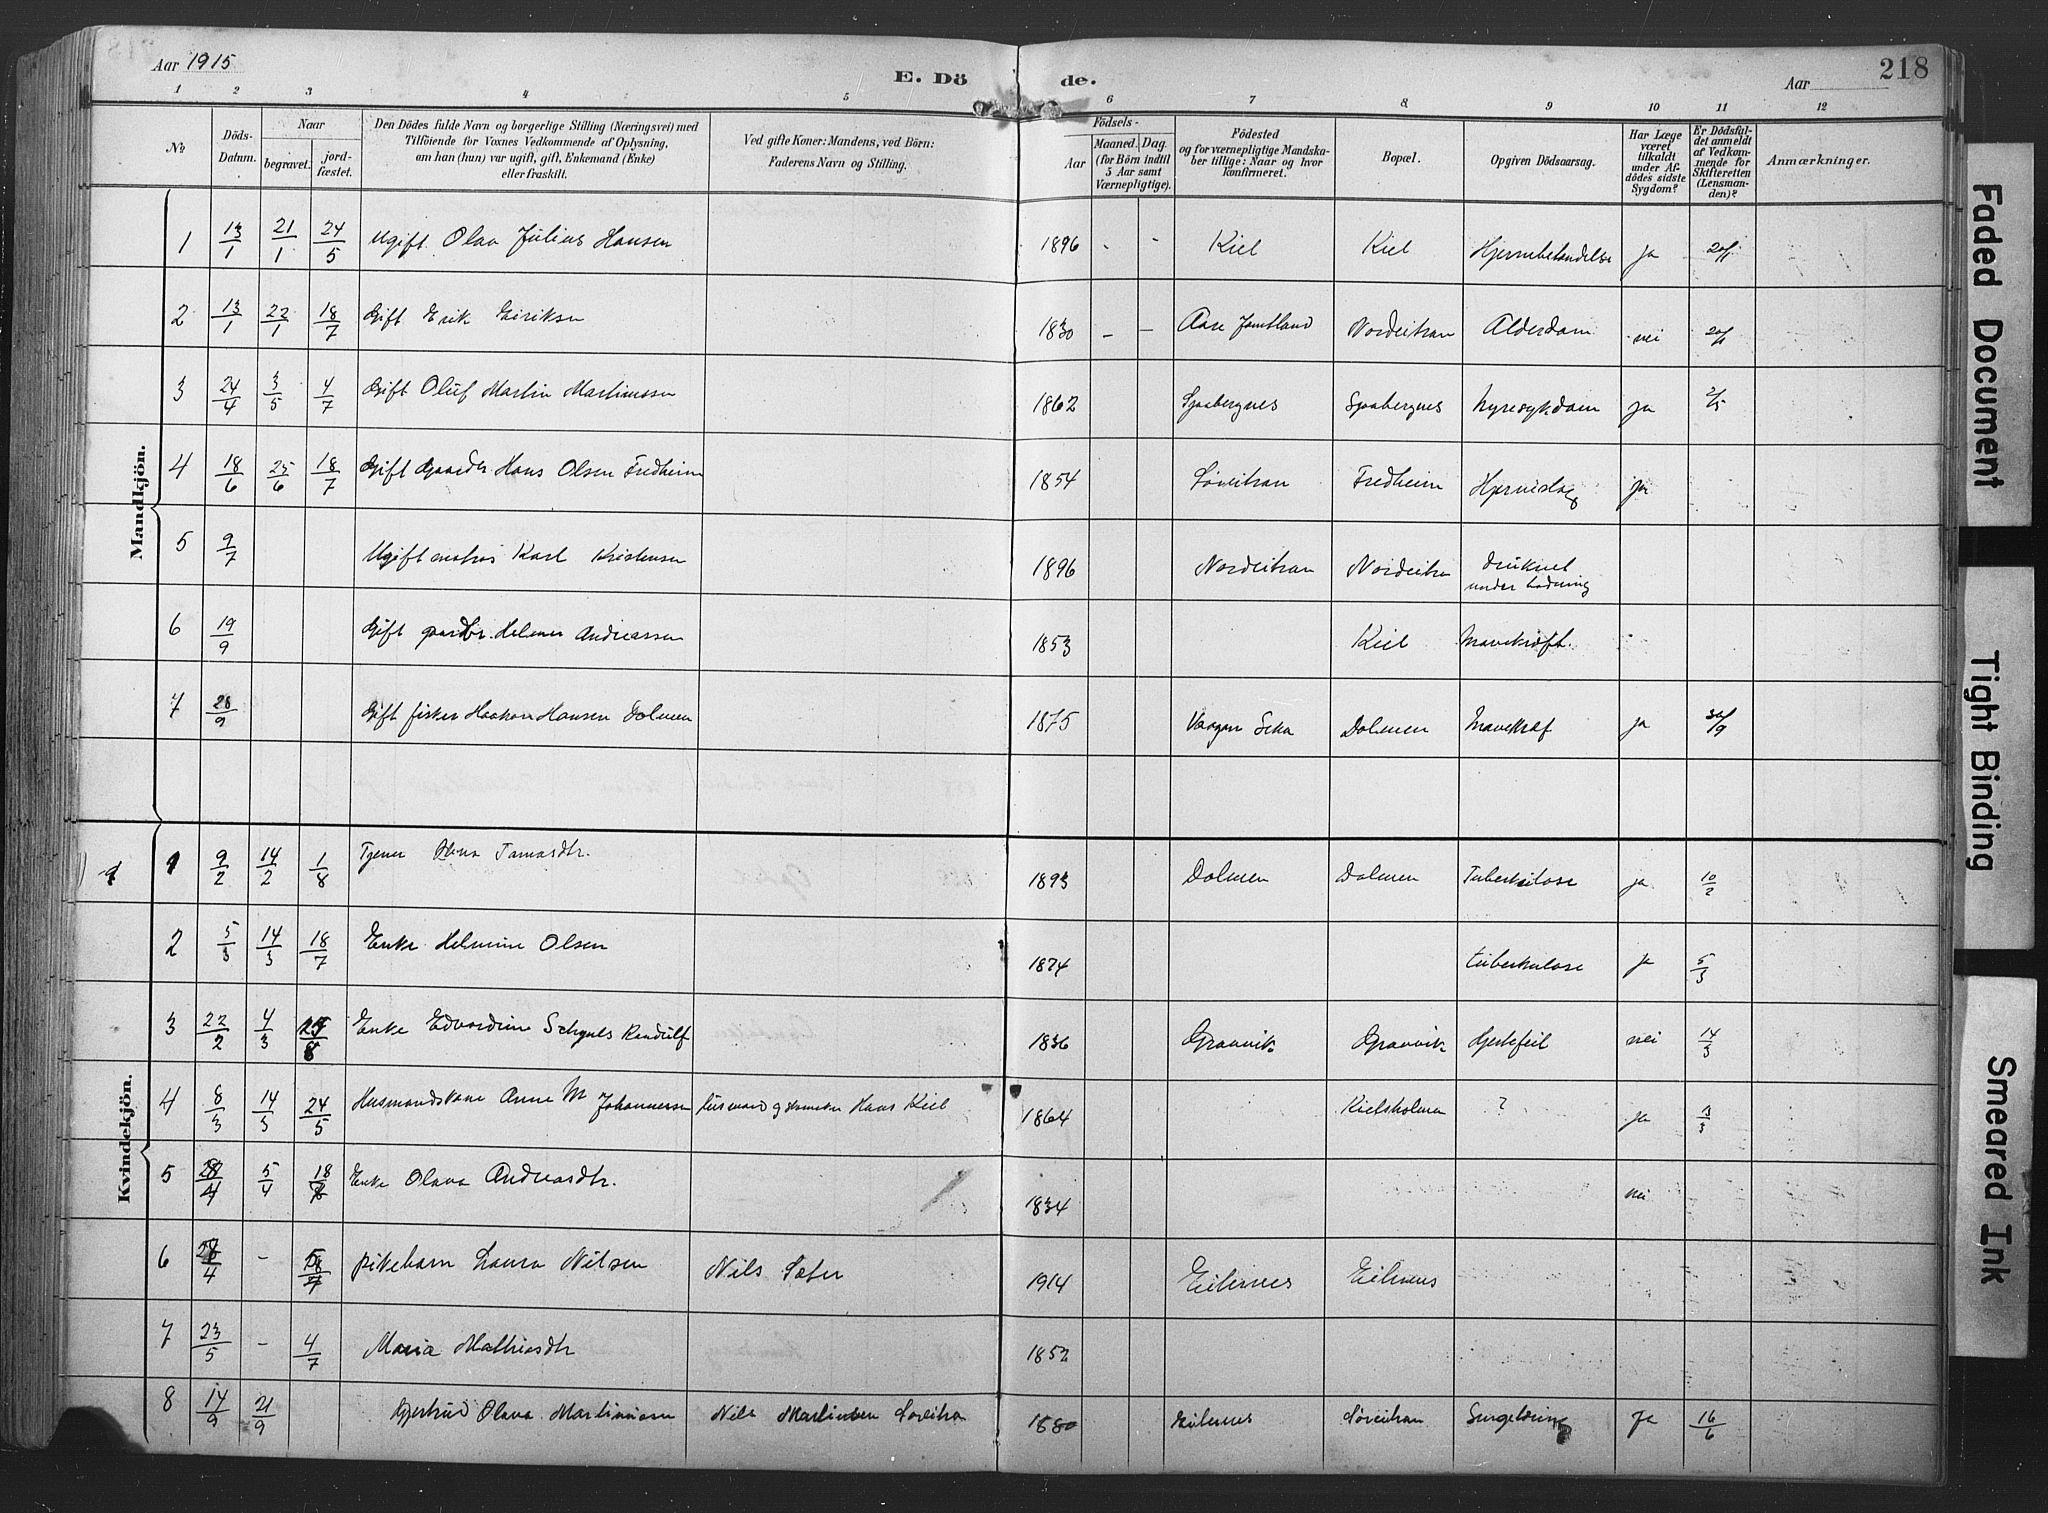 Aar 1915
E. Dö de.
Aar
218
1 2 3 4 5 6 7 8 9 10 11 12
№
Döds-Datum.
Naar
begravet.
jord-fæstet.
Den Dödes fulde Navn og borgerlige Stilling (Næringsvei) med
Tilföiende for Voxnes Vedkommende af Oplysning,
om han (hun) var ugift, gift, Enkemand (Enke)
eller fraskilt.
Ved gifte Koner: Mandens, ved Börn:
Faderens Navn og Stilling.
Födsels-
Aar
Maaned. Dag
(for Börn indtil
5 Aar samt
Værnepligtige).
Födested
og for værnepligtige Mandska-
ber tillige: Naar og hvor
konfirmeret.
Bopæl.
Opgiven Dödsaarsag.
Har Læge
været
tilkaldt
under Af-
dödes sidste
Sygdom?
Er Dödsfal-
det anmeldt
af Vedkom-
mende for
Skifteretten
(Lensman-
den)?
Anmærkninger.
Mandkjön.
1 13/1 21/1 24/5 Ugift Olav Julius Hansen 1896 - - Kiel Kiel Hjernebetændelse ja 20/1
2 13/1 22/1 18/7 Gift Erik Eiriksen 1830 - - Aare Jæmtland Nordeitran Alderdom nei 20/1
3 24/4 3/5 4/7 Gift Oluf Martin Martinussen 1862 Spabergnes Spabergnes Nyresykdom ja 2/5
4 18/6 25/6 18/7 Gift Gaardbr Hans Olsen Fredheim 1854 Søreitran Fredheim Hjerneslag ja
5 9/7 Ugift matros Karl Kristensen 1896 Nordeitran Nordeitra druknet
under lodsning
6 19/9 Gift gaardbr. Helmer Andreassen 1853 Kiel Mavekræft.
7 28/9 Gift fisker Haakon Hansen Dolmen 1875 Vaagan Dolmen Mavekræf ja 30/9
Kvindekjön.
1 9/2 14/2 1/8 Tjener Olava Tomasdtr. 1893 Dolmen Dolmen Tuberkulose ja 10/2
2 5/3 14/3 18/7 Enke Helmine Olsen 1874 tuberkulose ja 5/3
3 22/2 4/3 Enke Edvardine Randulf 1836 Gravvik Gravvik Hjertefeil nei 14/3
4 8/3 14/3 24/5 Husmandskone Anne M Johannessen Hans Kiel 1864 Kielsholmen ? ja
5 5/4 Enke Olava Andreasdtr. 1834 nei
6 - pikebarn Laura Nilsen Nils Sæter 1914 Eilernes Eilernes
7 23/5 - 4/7 Maria Mathiasdtr 1852
8 14/9 21/9 Gjertrud Olava Martinussen Nils Martinsen Søreitra 1880 Eilernes Søreitran ja 16/6
Faded Document
Tight Binding
Smeared Ink